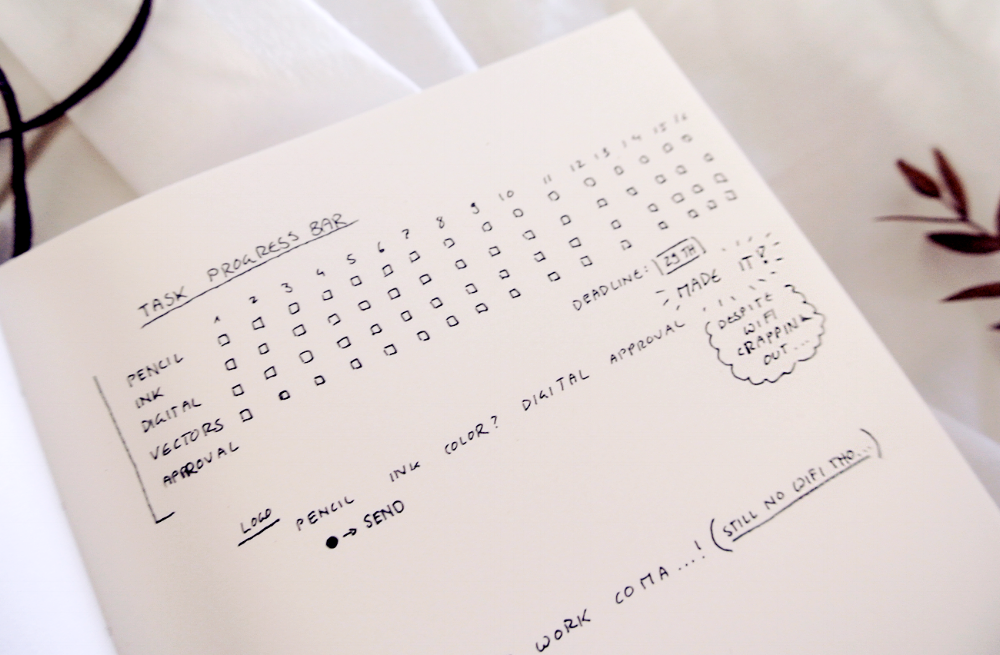 TASK PROGRESS BAR
1 2 3 4 5 6 7 8 9 10 11 12 13 14 15 16
PENCIL
INK
DIGITAL
VECTORS
APPROVAL
DEADLINE: 29TH
MADE IT!
DESPITE
WIFI
CRAPPING
OUT...
LOGO PENCIL INK COLOR? DIGITAL APPROVAL
→ SEND
WORK COMA...! (STILL NO WIFI THO...)